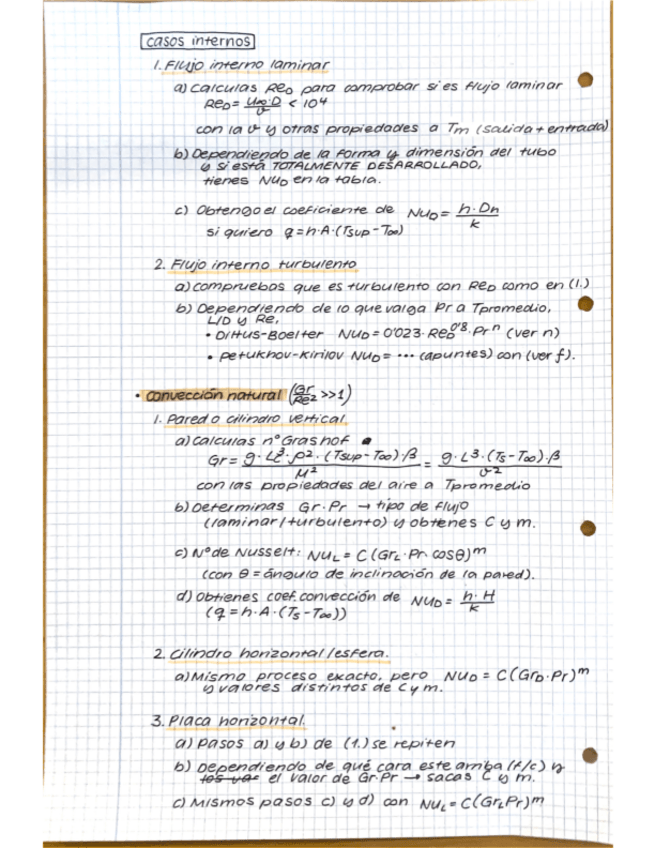 casos internos
1. Flujo interno laminar
a) Calculas ReD para comprobar si es flujo laminar
ReD = U∞·D/ν < 10⁴
con la ν y otras propiedades a Tm (salida + entrada)
b) Dependiendo de la forma y dimensión del tubo
y si está TOTALMENTE DESARROLLADO,
tienes NuD en la tabla.
c) Obtengo el coeficiente de NuD = h·Dh/k
si quiero q = h·A·(Tsup - T∞)
2. Flujo interno turbulento
a) compruebas que es turbulento con ReD como en (1.)
b) Dependiendo de lo que valga Pr a Tpromedio,
L/D y Re,
• Dittus-Boelter NuD = 0'023·ReD^0'8·Pr^n (ver n)
• Petukhov-Kirilov NuD = ... (apuntes) con (ver f).
• convección natural (Gr/Re² >>1)
1. Pared o cilindro vertical
a) Calculas nº Grashof
Gr = g·Lc³·ρ²·(Tsup - T∞)·β/μ² = g·L³·(Ts - T∞)·β/ν²
con las propiedades del aire a Tpromedio
b) Determinas Gr·Pr → tipo de flujo
(laminar/turbulento) y obtienes C y m.
c) Nº de Nusselt: NuL = C(GrL·Pr·cosθ)^m
(con θ = ángulo de inclinación de la pared).
d) Obtienes coef. convección de NuD = h·H/k
(q = h·A·(Ts - T∞))
2. Cilindro horizontal/esfera.
a) Mismo proceso exacto, pero NuD = C(GrD·Pr)^m
y valores distintos de C y m.
3. Placa horizontal.
a) Pasos a) y b) de (1.) se repiten
b) Dependiendo de qué cara este arriba (f/c) y
el valor de Gr·Pr → sacas C y m.
c) Mismos pasos c) y d) con NuL = C(GrLPr)^m